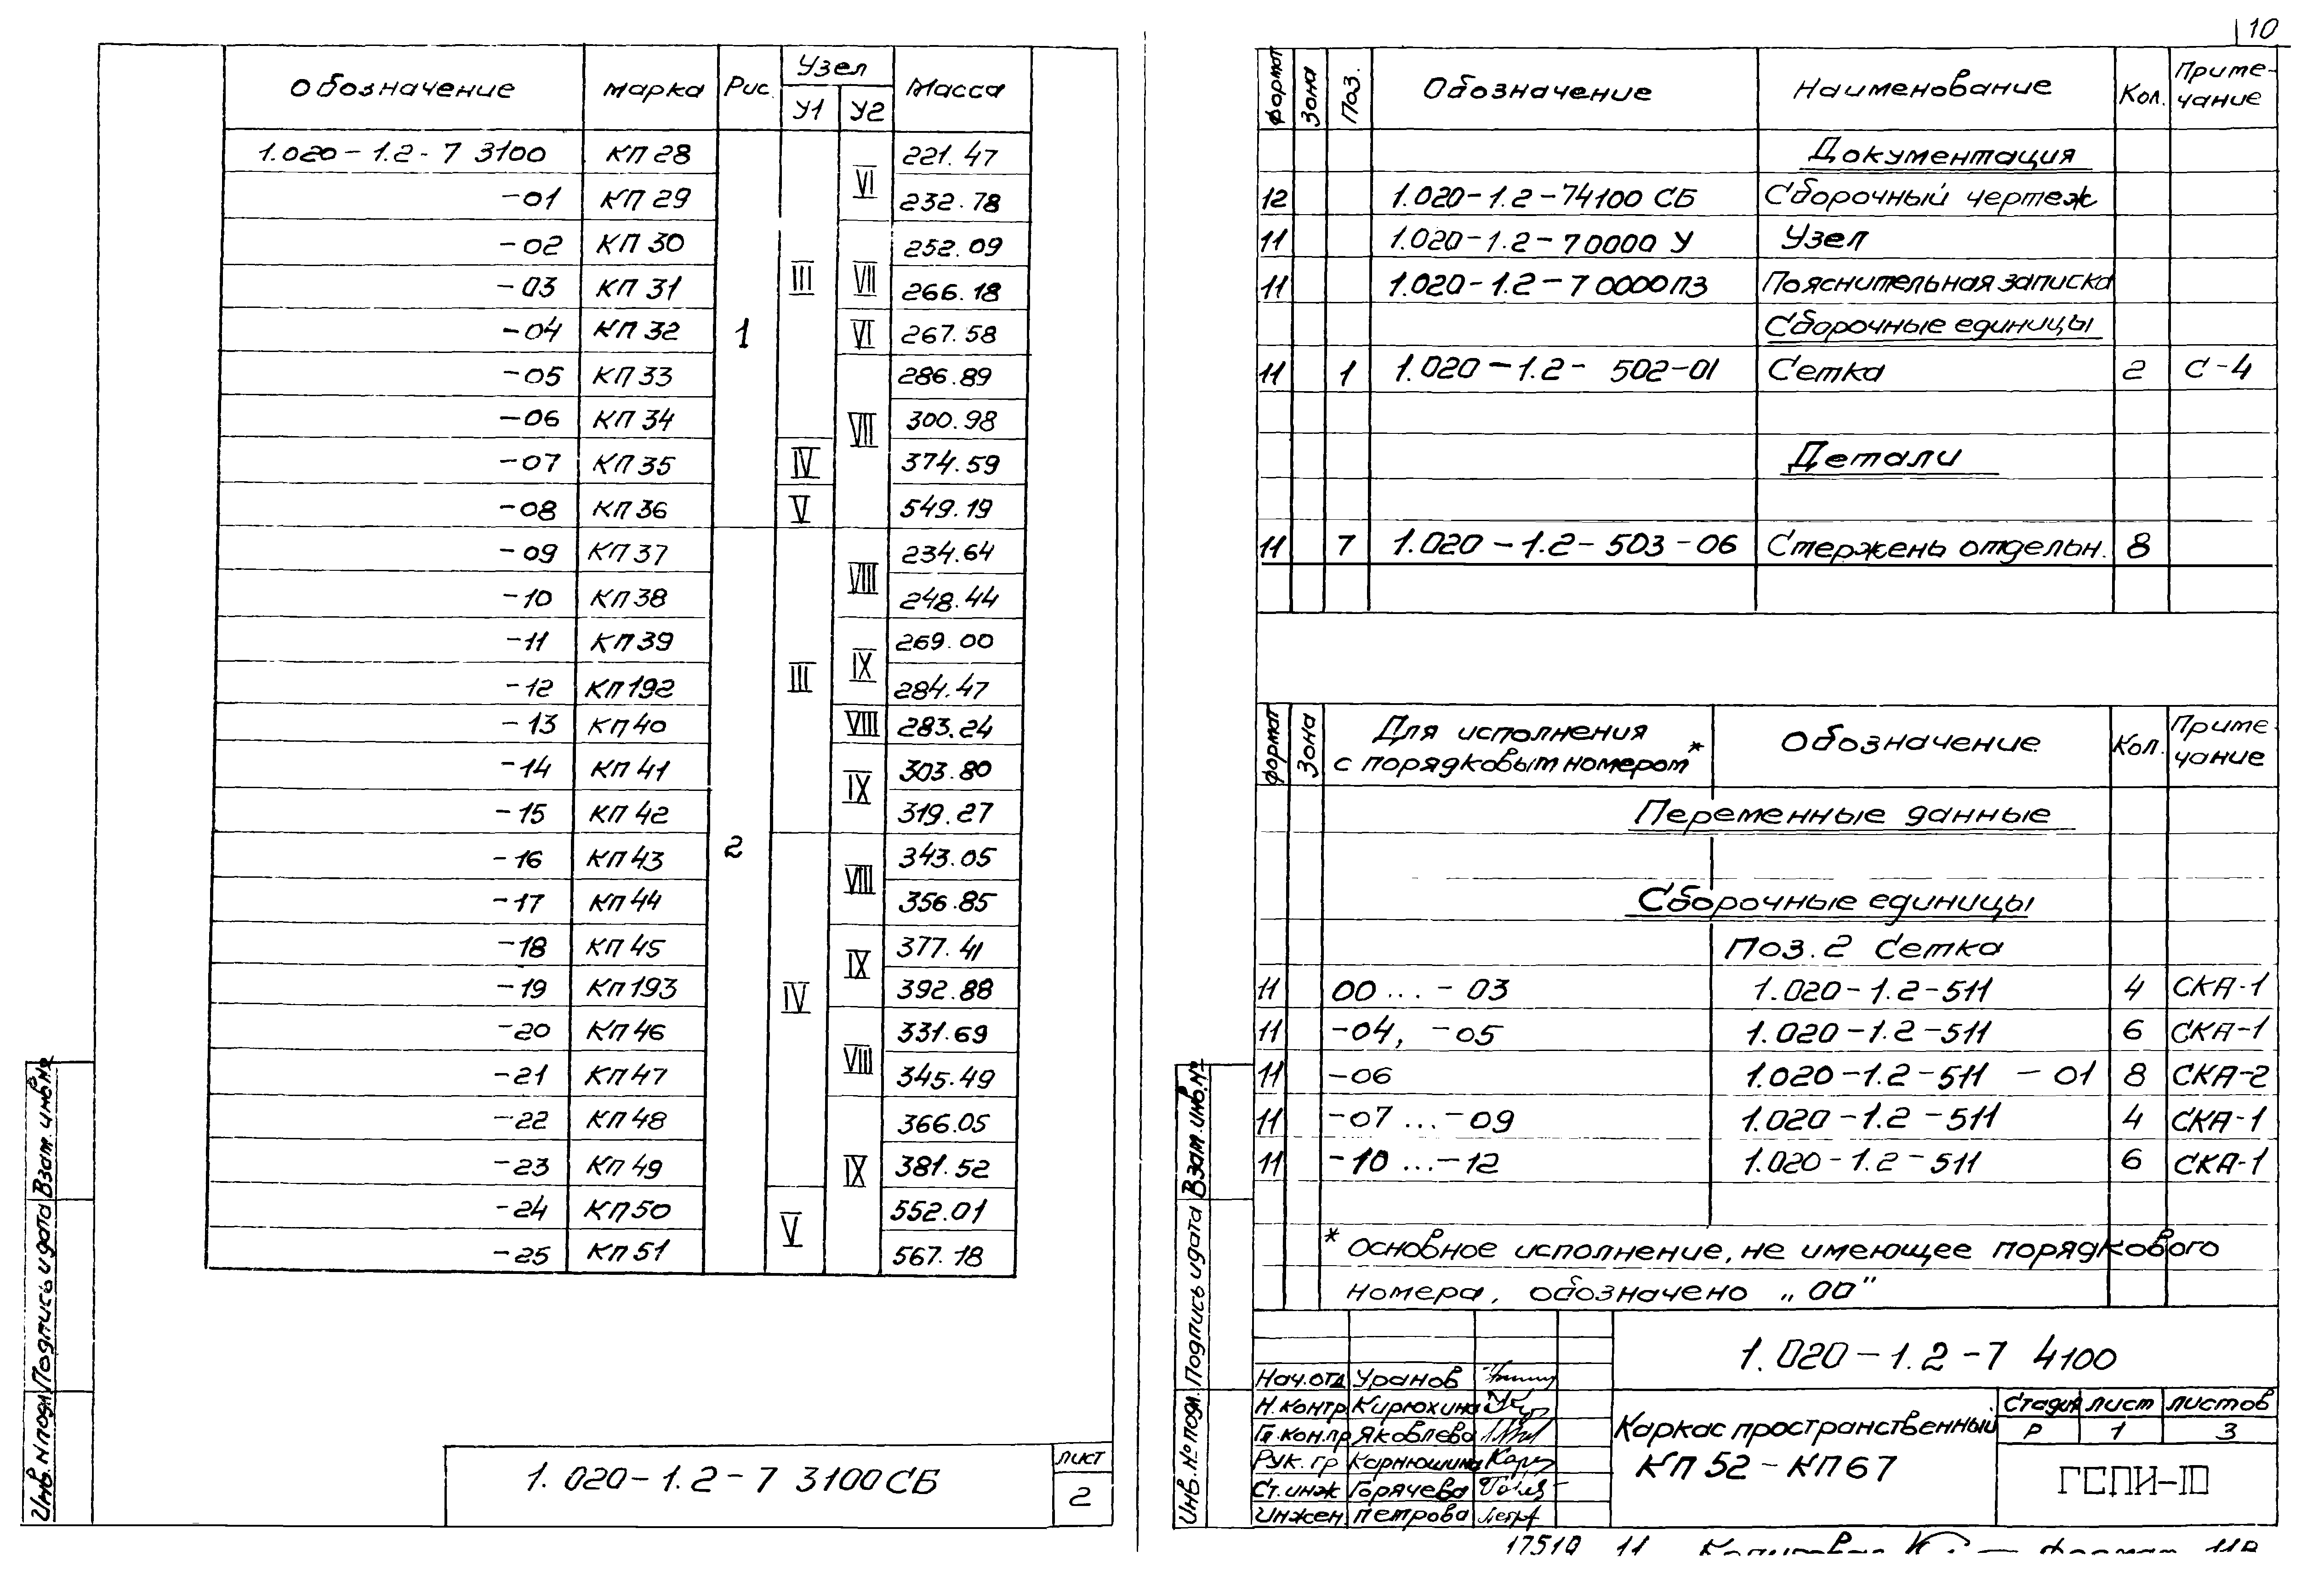 Обозначение Марка Рис. Узел Масса
У1 У2
1.020-1.2-7 3100 КП 28 1 III VI 221.47
-01 КП 29 232.78
-02 КП 30 VII 252.09
-03 КП 31 266.18
-04 КП 32 VI 267.58
-05 КП 33 VII 286.89
-06 КП 34 300.98
-07 КП 35 IV 374.59
-08 КП 36 V 549.19
-09 КП 37 2 III VIII 234.64
-10 КП 38 248.44
-11 КП 39 IX 269.00
-12 КП 192 284.47
-13 КП 40 VIII 283.24
-14 КП 41 IX 303.80
-15 КП 42 319.27
-16 КП 43 IV VIII 343.05
-17 КП 44 356.85
-18 КП 45 IX 377.41
-19 КП 193 392.88
-20 КП 46 VIII 331.69
-21 КП 47 345.49
-22 КП 48 IX 366.05
-23 КП 49 381.52
-24 КП 50 V 552.01
-25 КП 51 567.18
Инв. № подл. Подпись и дата Взам. инв. №
1.020-1.2-7 3100 СБ
Лист
2
10
Формат Зона Поз. Обозначение Наименование Кол. Примечание
Документация
12 1.020-1.2-74100 СБ Сборочный чертеж
11 1.020-1.2-70000 У Узел
11 1.020-1.2-70000ПЗ Пояснительная записка
Сборочные единицы
11 1 1.020-1.2- 502-01 Сетка 2 С-4
Детали
11 7 1.020-1.2-503-06 Стержень отдельн. 8
Формат Зона Для исполнения с порядковым номером* Обозначение Кол. Примечание
Переменные данные
Сборочные единицы
Поз. 2 Сетка
11 00 ... -03 1.020-1.2-511 4 СКА-1
11 -04, -05 1.020-1.2-511 6 СКА-1
11 -06 1.020-1.2-511 -01 8 СКА-2
11 -07 ... -09 1.020-1.2-511 4 СКА-1
11 -10 ... -12 1.020-1.2-511 6 СКА-1
* Основное исполнение, не имеющее порядкового
номера, обозначено „00"
Инв. № подл. Подпись и дата Взам. инв. №
1.020-1.2-7 4100
Нач.отд Уранов
Н.контр Кирюхина
Гл.кон.пр Яковлева
Рук. гр Карнюшина
Ст.инж Горячева
Инжен Петрова
Каркас пространственный
КП 52 - КП 67
Стадия Лист Листов
Р 1 3
ГСПИ-10
11